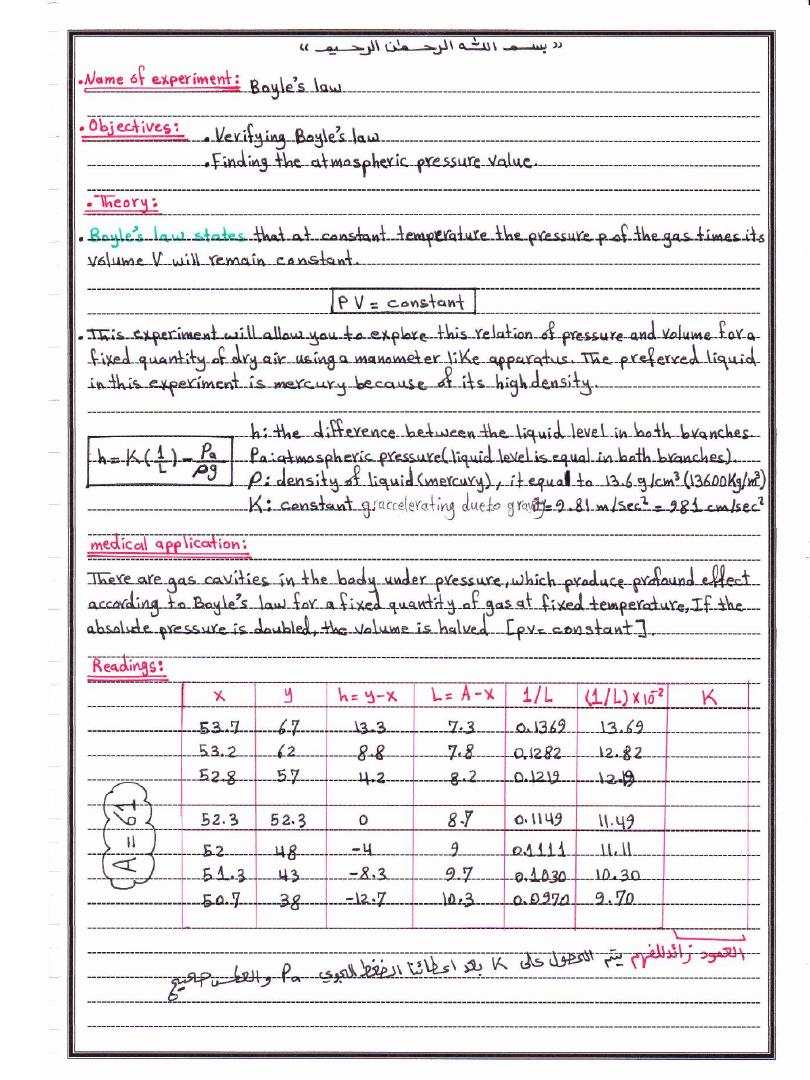 « بسم الله الرحمن الرحيم »
• Name of experiment: Boyle's law
• Objectives: • Verifying Boyle's law
• Finding the atmospheric pressure value.
• Theory:
• Boyle's law states that at constant temperature the pressure p of the gas times its
volume V will remain constant.
PV = constant
• This experiment will allow you to explore this relation of pressure and volume for a
fixed quantity of dry air using a manometer like apparatus. The preferred liquid
in this experiment is mercury because of its high density.
h = K(1/L) - Pa/ρg
h: the difference between the liquid level in both branches
Pa: atmospheric pressure (liquid level is equal in both branches).
ρ: density of liquid (mercury), it equal to 13.6 g/cm³ (13600 Kg/m³)
K: constant g: accelerating due to gravity = 9.81 m/sec² = 981 cm/sec²
medical application:
There are gas cavities in the body under pressure, which produce profound effect
according to Boyle's law for a fixed quantity of gas at fixed temperature, If the
absolute pressure is doubled, the volume is halved [pv = constant].
Readings:
x y h = y-x L = A-x 1/L (1/L)x10⁻² K
53.7 67 13.3 7.3 0.1369 13.69
53.2 62 8.8 7.8 0.1282 12.82
52.8 57 4.2 8.2 0.1219 12.19
52.3 52.3 0 8.7 0.1149 11.49
52 48 -4 9 0.1111 11.11
51.3 43 -8.3 9.7 0.1030 10.30
50.7 38 -12.7 10.3 0.0970 9.70
A = 61
العمود زائد للفهم يتم الحصول على K بعد اعطائنا الضغط الجوي Pa والعكس صحيح